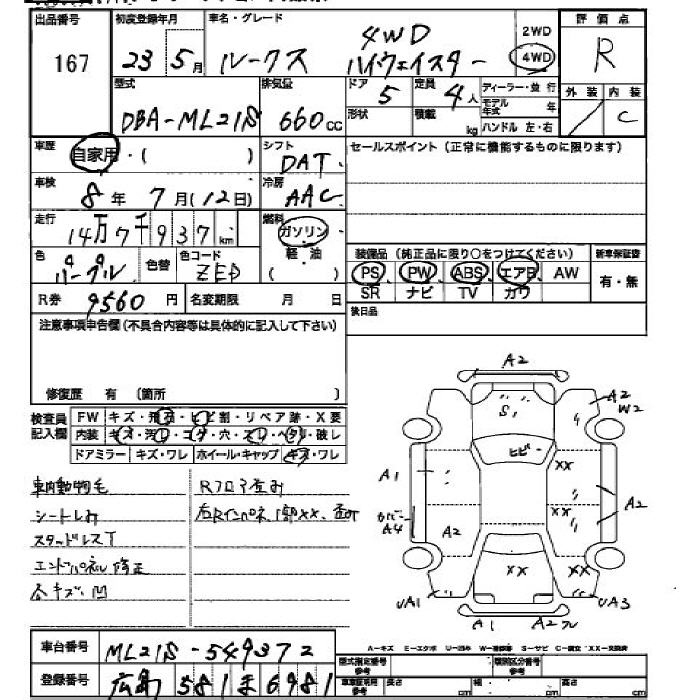 出品番号 初度登録年月 車名・グレード 2WD 評価点
167 23 5月 ルークス 4WD ハイウェイスター 4WD R
型式 排気量 ドア 定員 ディーラー・並行 外装 内装
DBA-ML21S 660cc 5 4人 モデル年式 年 / C
形状 積載 kg ハンドル 左・右
車歴 自家用・( ) シフト DAT セールスポイント(正常に機能するものに限ります)
車検 8年 7月(12日) 冷房 AAC
走行 14万7千937km 燃料 ガソリン 軽油 ( )
装備品(純正品に限り○をつけてください) 新車保証書
色 パープル 色替 色コード ZED PS PW ABS エアB AW 有・無
SR ナビ TV カワ
R券 9560円 名変期限 月 日 後日品
注意事項申告欄(不具合内容等は具体的に記入して下さい)
修復歴 有 (箇所 )
検査員記入欄 FW キズ・飛石・ヒビ割・リペア跡・X要
内装 キズ・汚れ・コゲ・穴・スレ・ヘタリ・破レ
ドアミラー キズ・ワレ ホイール・キャップ キズ・ワレ
車内動物毛 Rフロア歪み
シートしみ
スタッドレスT
エンドパネル修正
各キズ、凹
A2
S1
A2
W2
ヒビ
XX
A1
XX
A2
カバー
A4
A2
XX
XX
UA1
UA3
A1
A2
A-キズ E-エクボ
車台番号 ML21S-549372
登録番号 広島 581 ま 6981
型式指定番号 類別区分番号
参考 参考
長さ cm 幅 cm 高さ cm